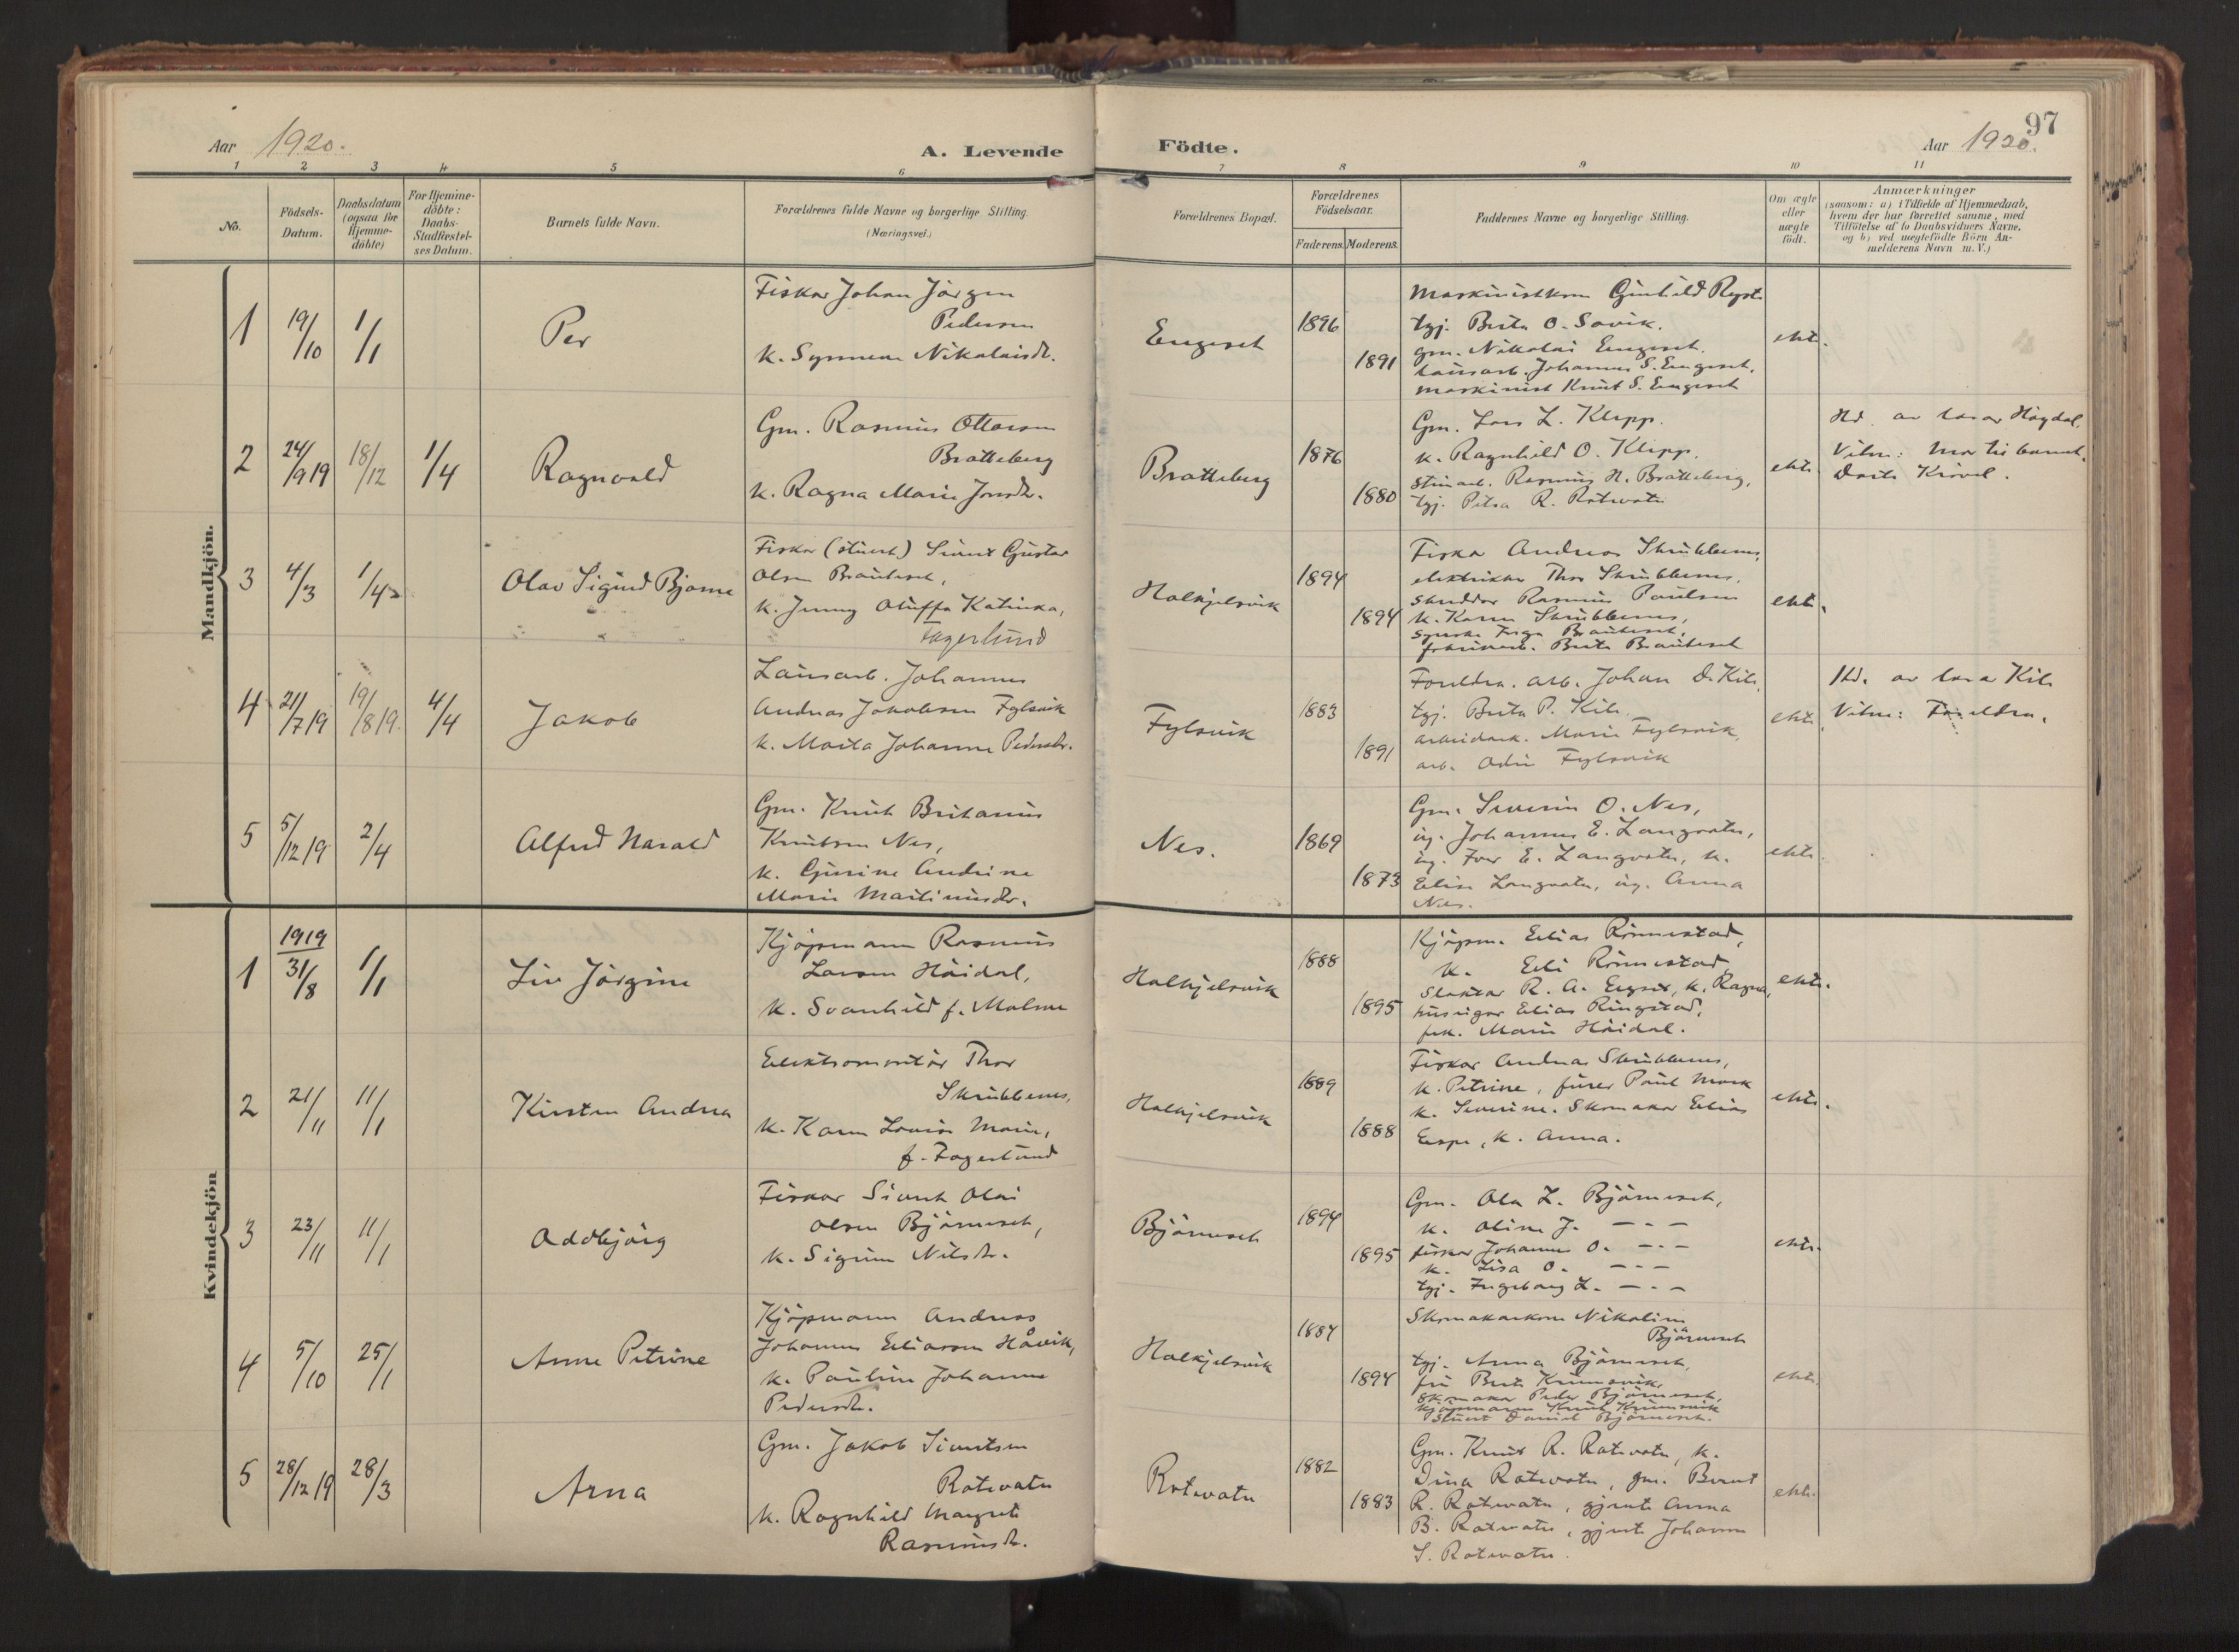 97
Aar 1920.
A. Levende Födte.
Aar 1920.
1 2 3 4 5 6 7 8 9 10 11
No.
Födsels-
Datum.
Daabsdatum
(ogsaa for
Hjemme-
döbte)
For Hjemme-
döbte:
Daabs-
Stadfæstel-
ses Datum.
Barnets fulde Navn.
Forældrenes fulde Navne og borgerlige Stilling.
(Næringsvei.)
Forældrenes Bopæl.
Forældrenes
Födselsaar.
Faderens. Moderens.
Faddernes Navne og borgerlige Stilling.
Om ægte
eller
uægte
födt.
Anmærkninger
(saasom: a) i Tilfælde af Hjemmedaab,
hvem der har forrettet samme, med
Tilföielse af to Daabsvidners Navne,
og b) ved uægtefödte Börn An-
melderens Navn m. V.)
Mandkjön.
1 19/10 1/1 Per
Fiskar Johan Jörgen
Pedersen
k. Synneve Nikolaisdr.
Engeset 1896 1891
Maskinistkone Gunhild Ryste
tgj. Brita O. Sovik.
gm. Nikolai Engeset.
lausarb. Johannes S. Engeset.
maskinist Knut S. Engeset
ekte.
2 24/9 19 18/12 1/4 Ragnvald
Gm. Rasmus Ottesen
Bratteberg
k. Ragna Marie Jonsdr.
Bratteberg 1876 1880
Gm. Lars L. Klepp.
k. Ragnhild O. Klepp.
Rasmus H. Bratteberg,
tgj. R. Rotevatn
ekte
Hd. av lærar Högdal.
Vitne: Mor til barnet.
3 4/3 1/4 Olav Sigurd Bjarne
Fiskar (stuert) Sivert Gustav
Olsen Brauteset,
k. Jenny Oluffa Katinka,
Fagerlund
Halkjelsvik 1894 1894
Fiskar Andreas Skrubbenes,
elektrikar Thor Skrubbenes.
skreddar Rasmus Paulsen
k. Karen Skrubbenes,
Brauteset.
Brita Brauteset
ekte.
4 21/7 19 19/8 19. 4/4 Jakob
Lausarb. Johannes
Andreas Jakobsen Fylsvik
k. Marta Johanne Pedersdr.
Fylsvik 1883 1891
Foreldra. arb. Johan D. Kile,
tgj. Brita P. Kile.
arbeidark. Marie Fylsvik,
arb. Odin Fylsvik
ekte.
Hd. av lærar Kile
Vitne: Foreldra.
5 5/12 19 2/4 Alfred Harald
Gm. Knut Britanus
Knutsen Nes,
k. Gurine Andrine
Marie Martinusdr.
Nes. 1869 1873
Gm. Severin O. Nes,
ug. Johannes E. Langvatn,
ug. Iver E. Langvatn, k.
Eline Langvatn, ug. Anna
Nes.
ekte.
Kvindekjön
1919
1 31/8 1/1 Liv Jörgine
Kjöpmann Rasmus
Larsen Höidal,
k. Svanhild f. Malme
Halkjelsvik 1888 1895
Kjöpm. Elias Rönnestad,
k. Eli Rönnestad
Slaktar R. A. k. Ragna,
huseigar Elias Ringstad,
frk. Marie Höidal.
ekte.
2 21/11 11/1 Kirsten Andrea
Elektromontör Thor
Skrubbenes,
k. Karen Lovise Marie,
f. Fagerlund
Halkjelsvik 1889 1888
Fiskar Andreas Skrubbenes,
k. Petrine, furer Paul Mork
k. Severine. Skomakar Elias
k. Anna.
ekte.
3 23/11 11/1 Oddbjörg
Fiskar Sivert Olai
Olsen Björneset,
k. Sigrun Nilsdr.
Björneset 1894 1895
Gm. Ola L. Björneset,
k. Oline J. —.—
fiskar Johannes O. —.—
k. Lisa O. —.—
tgj. Ingeborg L. —.—
ekte.
4 5/10 25/1 Anne Petrine
Kjöpmann Andreas
Johannes Eliassen Håvik,
k. Pauline Johanne
Pedersdr.
Halkjelsvik 1884 1894
Skomakarkone Nikoline
Björneset
tgj. Anna Björneset,
fru Brit Krumsvik,
skomakar Peder Björneset,
kjöpmann Knut Krumsvik
stuert Daniel Björneset.
ekte.
5 28/12 19 28/3 Arna
Gm. Jakob Sivertsen
Rotevatn
k. Ragnhild Margrete
Rasmusdr.
Rotevatn 1882 1883
Gm. Knut R. Rotevatn, k.
Dina Rotevatn, gm. Bernt
R. Rotevatn, gjente Anna
B. Rotevatn, gjente Johanne
S. Rotevatn.
ekte.